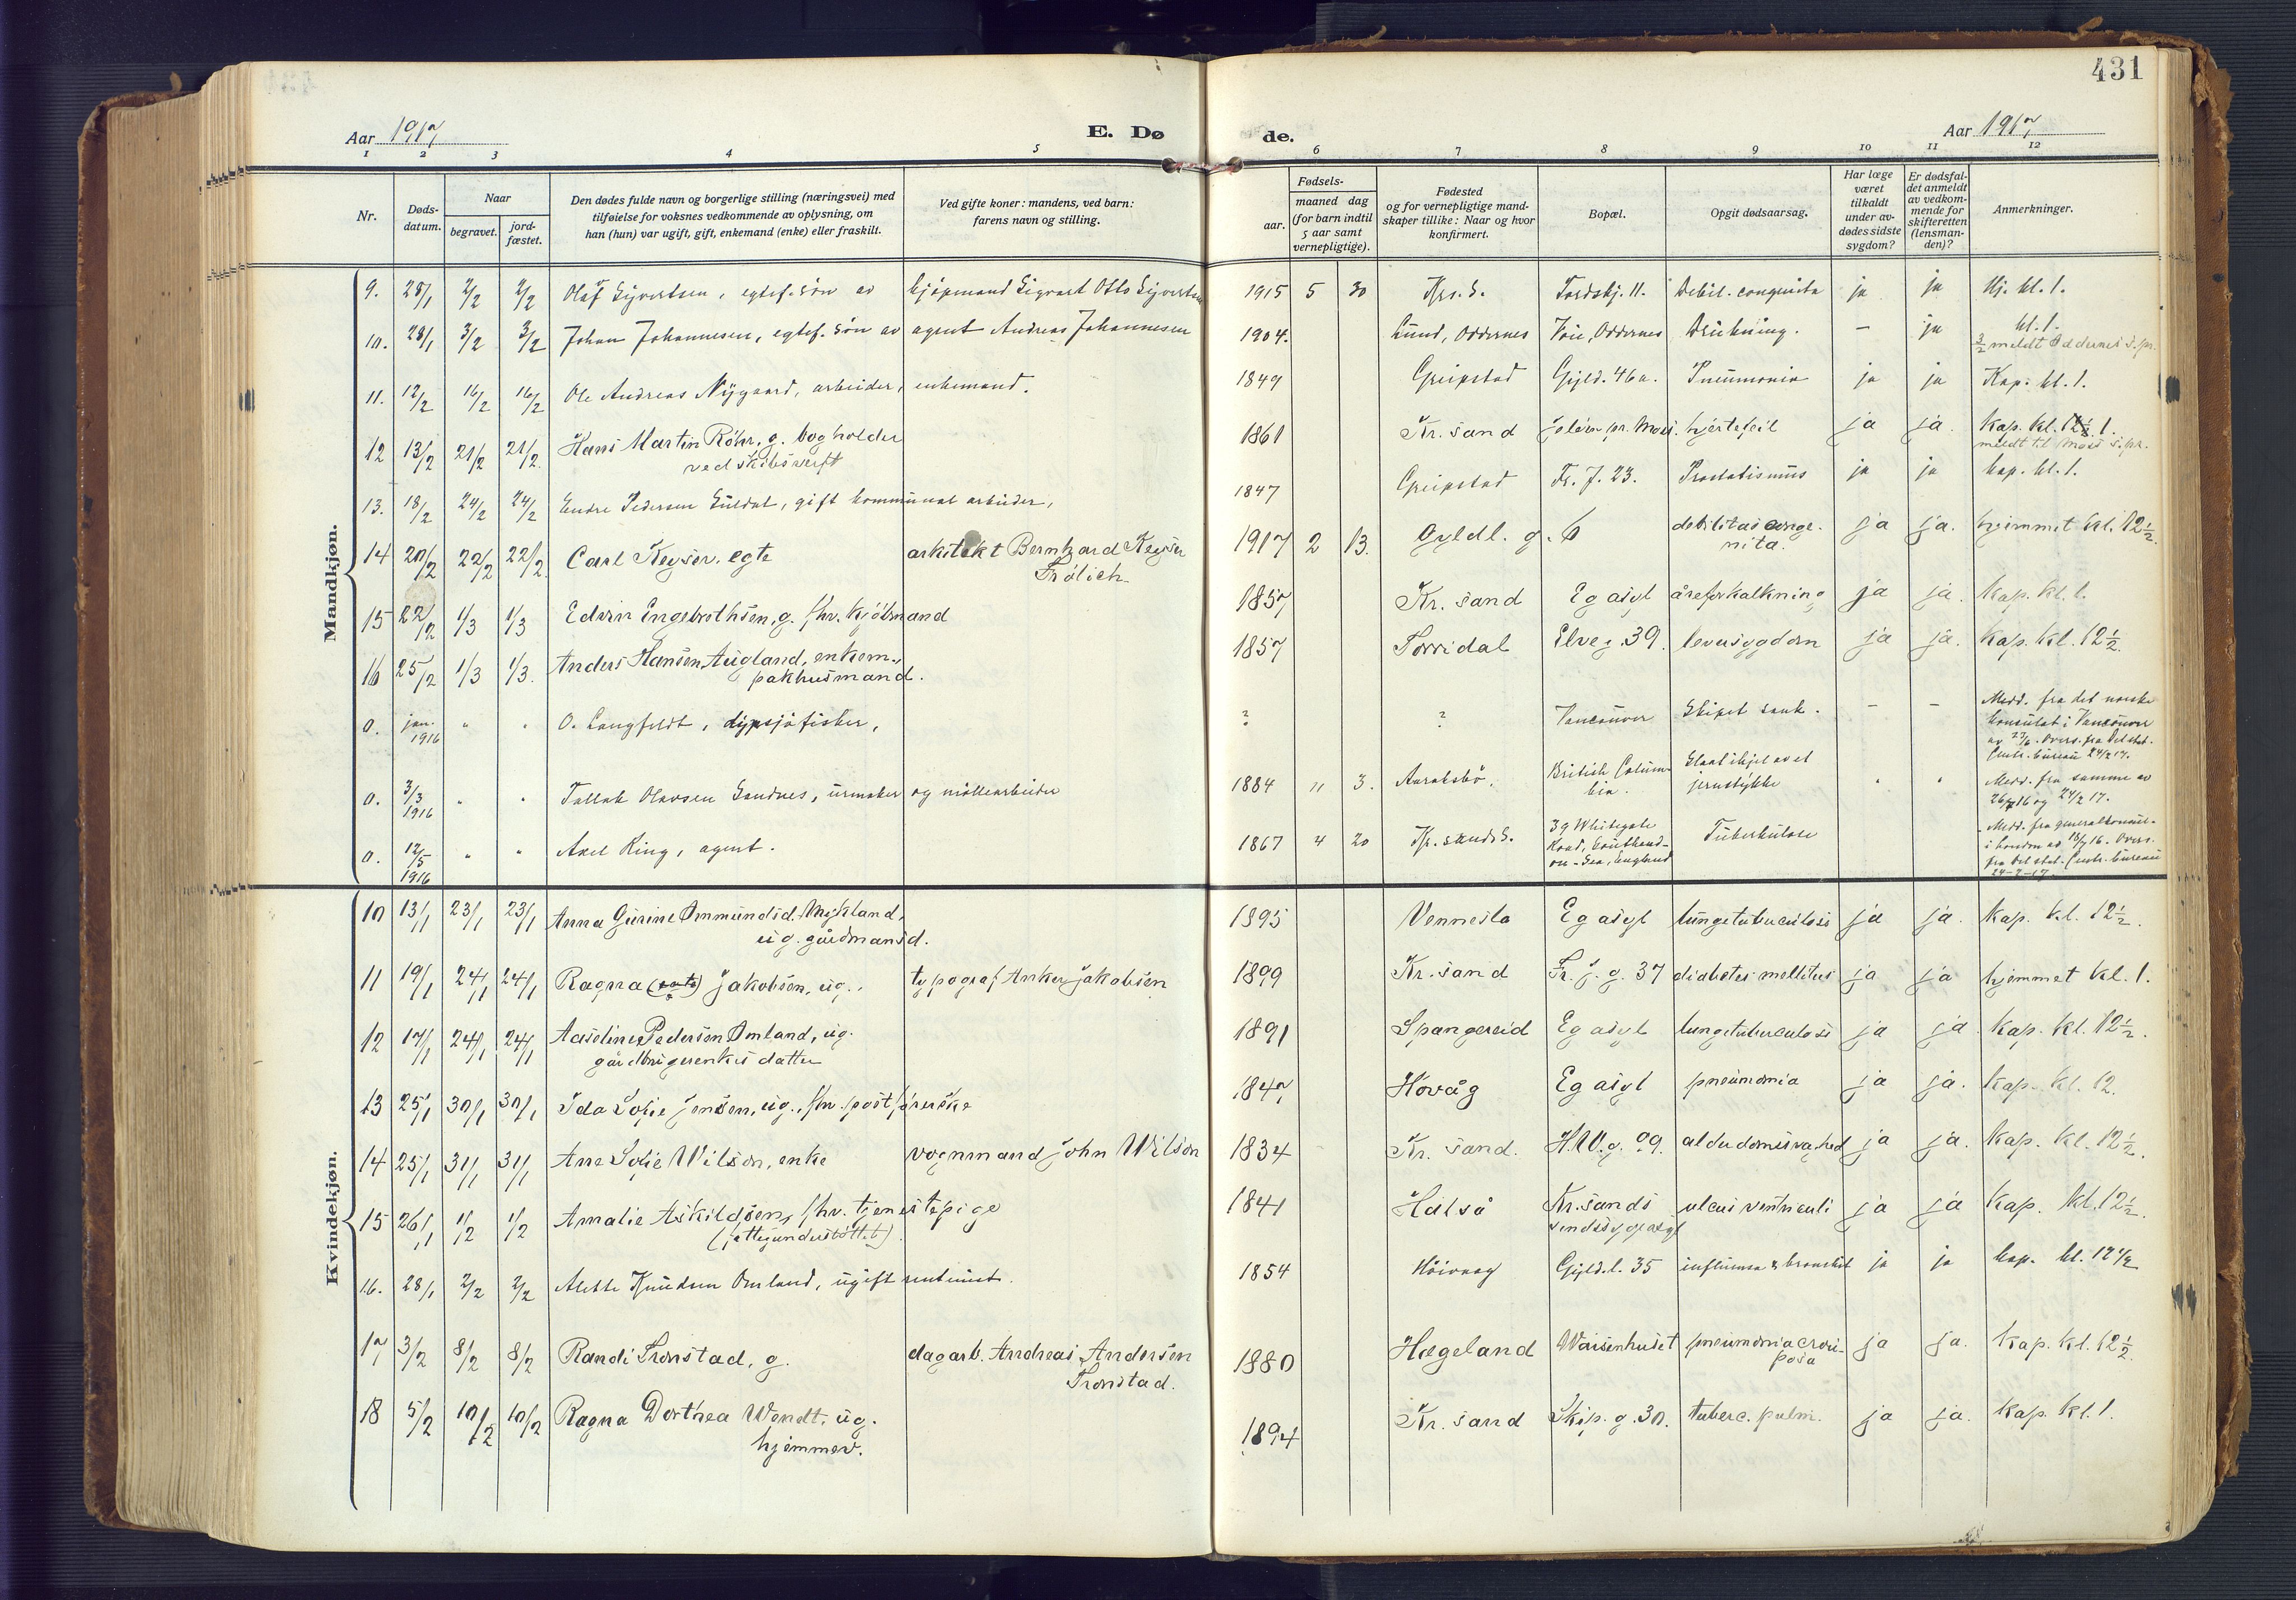 431
Aar 1917 E. Dø de. Aar 1917
1 2 3 4 5 6 7 8 9 10 11 12
Nr.
Døds-
datum.
Naar
begravet.
jord-
fæstet.
Den dødes fulde navn og borgerlige stilling (næringsvei) med
tilføielse for voksnes vedkommende av oplysning, om
han (hun) var ugift, gift, enkemand (enke) eller fraskilt.
Ved gifte koner: mandens, ved barn:
farens navn og stilling.
Fødsels-
aar.
maaned dag
(for barn indtil
5 aar samt
vernepligtige).
Fødested
og for vernepligtige mand-
skaper tillike: Naar og hvor
konfirmert.
Bopæl.
Opgit dødsaarsag.
Har læge
været
tilkaldt
under av-
dødes sidste
sygdom?
Er dødsfal-
det anmeldt
av vedkom-
mende for
skifteretten
(lensman-
den)?
Anmerkninger.
Mandkjøn.
9. 28/1 2/2 2/2 Olaf Sigvertsen, egtef. søn av kjöpmand Sigvart Otto Sigvertsen 1915 5 30 Krs. S. Tordskj. 11. Debil. congenita ja ja Hj. kl. 1.
10. 28/1 3/2 3/2 Johan Johannesen, egtef. søn av agent Andreas Johannesen 1904. Lund, Oddernes Voie, Oddernes Drukning. – ja kl. 1.
3/2 meldt Oddernes s.pr.
11. 12/2 16/2 16/2 Ole Andreas Nygaard, arbeider, enkemand. 1849 Greipstad Gyld. 46a. Pneumonia ja ja Kap. kl. 1.
12 13/2 21/2 21/2. Hans Martin Röhr, g. bogholder
ved skibsverft 1861 Kr. sand pr. Moss. hjertefeil ja ja. Kap. kl. 1.
meldt til Moss s.pr.
13. 18/2 24/2 24/2 Endre Pedersen Suldal, gift kommunal arbeider, 1847 Greipstad Fr. J. 23. Prostatismus ja ja kap. kl. 1.
14 20/2 22/2 22/2. Carl Keyser, egte arkitekt Bernhard Keyser
Frölich 1917 2 13. Gyldl. g. 6 debilitas conge-
nita. ja ja. hjemmet kl. 12½.
15 22/2 1/3 1/3 Edvin Engebrethsen, g. fhv. kjöbmand 1857 Kr. sand Eg asyl åreforkalkning ja ja. Kap. kl. 1.
16 25/2 1/3 1/3. Anders Hansen Augland, enkem.,
pakhusmand. 1857 Torridal Elveg. 39. leversygdom ja ja. Kap. kl. 12½.
0. jan.
1916 " " O. Langfeldt, dypsjöfisker, ? ? Vancouver Skipet sank. – – Medd. fra det norske
konsulat i Vancouver
av 27/6. Overs. fra Det stat.
Centr. bureau 24/2 17.
0. 3/3
1916 " " Tallak Olavsen Sandnes, urmaker og möllearbeider 1884 11 3. Aaraksbö. British Colum-
bia. Slaat ihjel av et
jernstykke " " Medd. fra samme av
26/7 16 og 24/2 17.
0. 12/5
1916 " " Axel Ring, agent. 1867 4 20 Kr. sands S. 39 Whitegate
Road, Southend-
on-Sea, England Tuberkulose Medd. fra generalkonsul.
i London av 18/7 16. Overs.
fra Det stat. Centr. bureau
24-2-17
Kvindekjøn.
10 13/1 23/1 23/1 Anna Gurine Ommundsd. Mykland,
ug. gårdmansd. 1895 Vennesla Eg asyl lungetuberculosis ja ja. Kap. kl. 12½.
11 19/1 24/1 24/1 Ragna Jakobsen, ug., typograf Anker Jakobsen 1899 Kr. sand Fr. j. g. 37 diabetes mellitus ja ja hjemmet kl. 1.
12 17/1 24/1 24/1 Aaseline Pedersen Omland, ug.
gårdbrugerenkes datter 1891 Spangereid Eg asyl lungetuberculosis ja ja. Kap. kl. 12½.
13 25/1 30/1 30/1 Ida Sofie Jensen, ug., fhv. postförerske 1847 Hovåg Eg asyl pneumonia ja ja. Kap. kl. 12.
14 25/1 31/1 31/1 Ane Sofie Wilson, enke vognmand John Wilson 1834 Kr. sand. H.W.g. 99. alderdomssvaghed ja ja. Kap. kl. 12½.
15 26/1 1/2 1/2 Amalie Askildsen, fhv. tjenestepige
(fattigunderstöttet). 1841 Halså Kr.sands
sindssygeasyl ulcus ventriculi ja ja Kap. kl. 12½.
16. 28/1 2/2 2/2 Alette Knudsen Omland, ugift rentenist. 1854 Höivaag Gyld.l. 35 influensa & bronchit ja ja kap. kl. 12½
17 3/2 8/2 8/2 Randi Tronstad, g. dagarb. Andreas Andersen
Tronstad. 1880 Hægeland Waisenhuset pneumonia crou-
posa ja ja. Kap. kl. 12½.
18 5/2 10/2 10/2 Ragna Dorthea Wendt, ug.
hjemmev. 1894 Kr. sand Skip. g. 30. tuberc. pulm. ja ja. Kap. kl. 1.